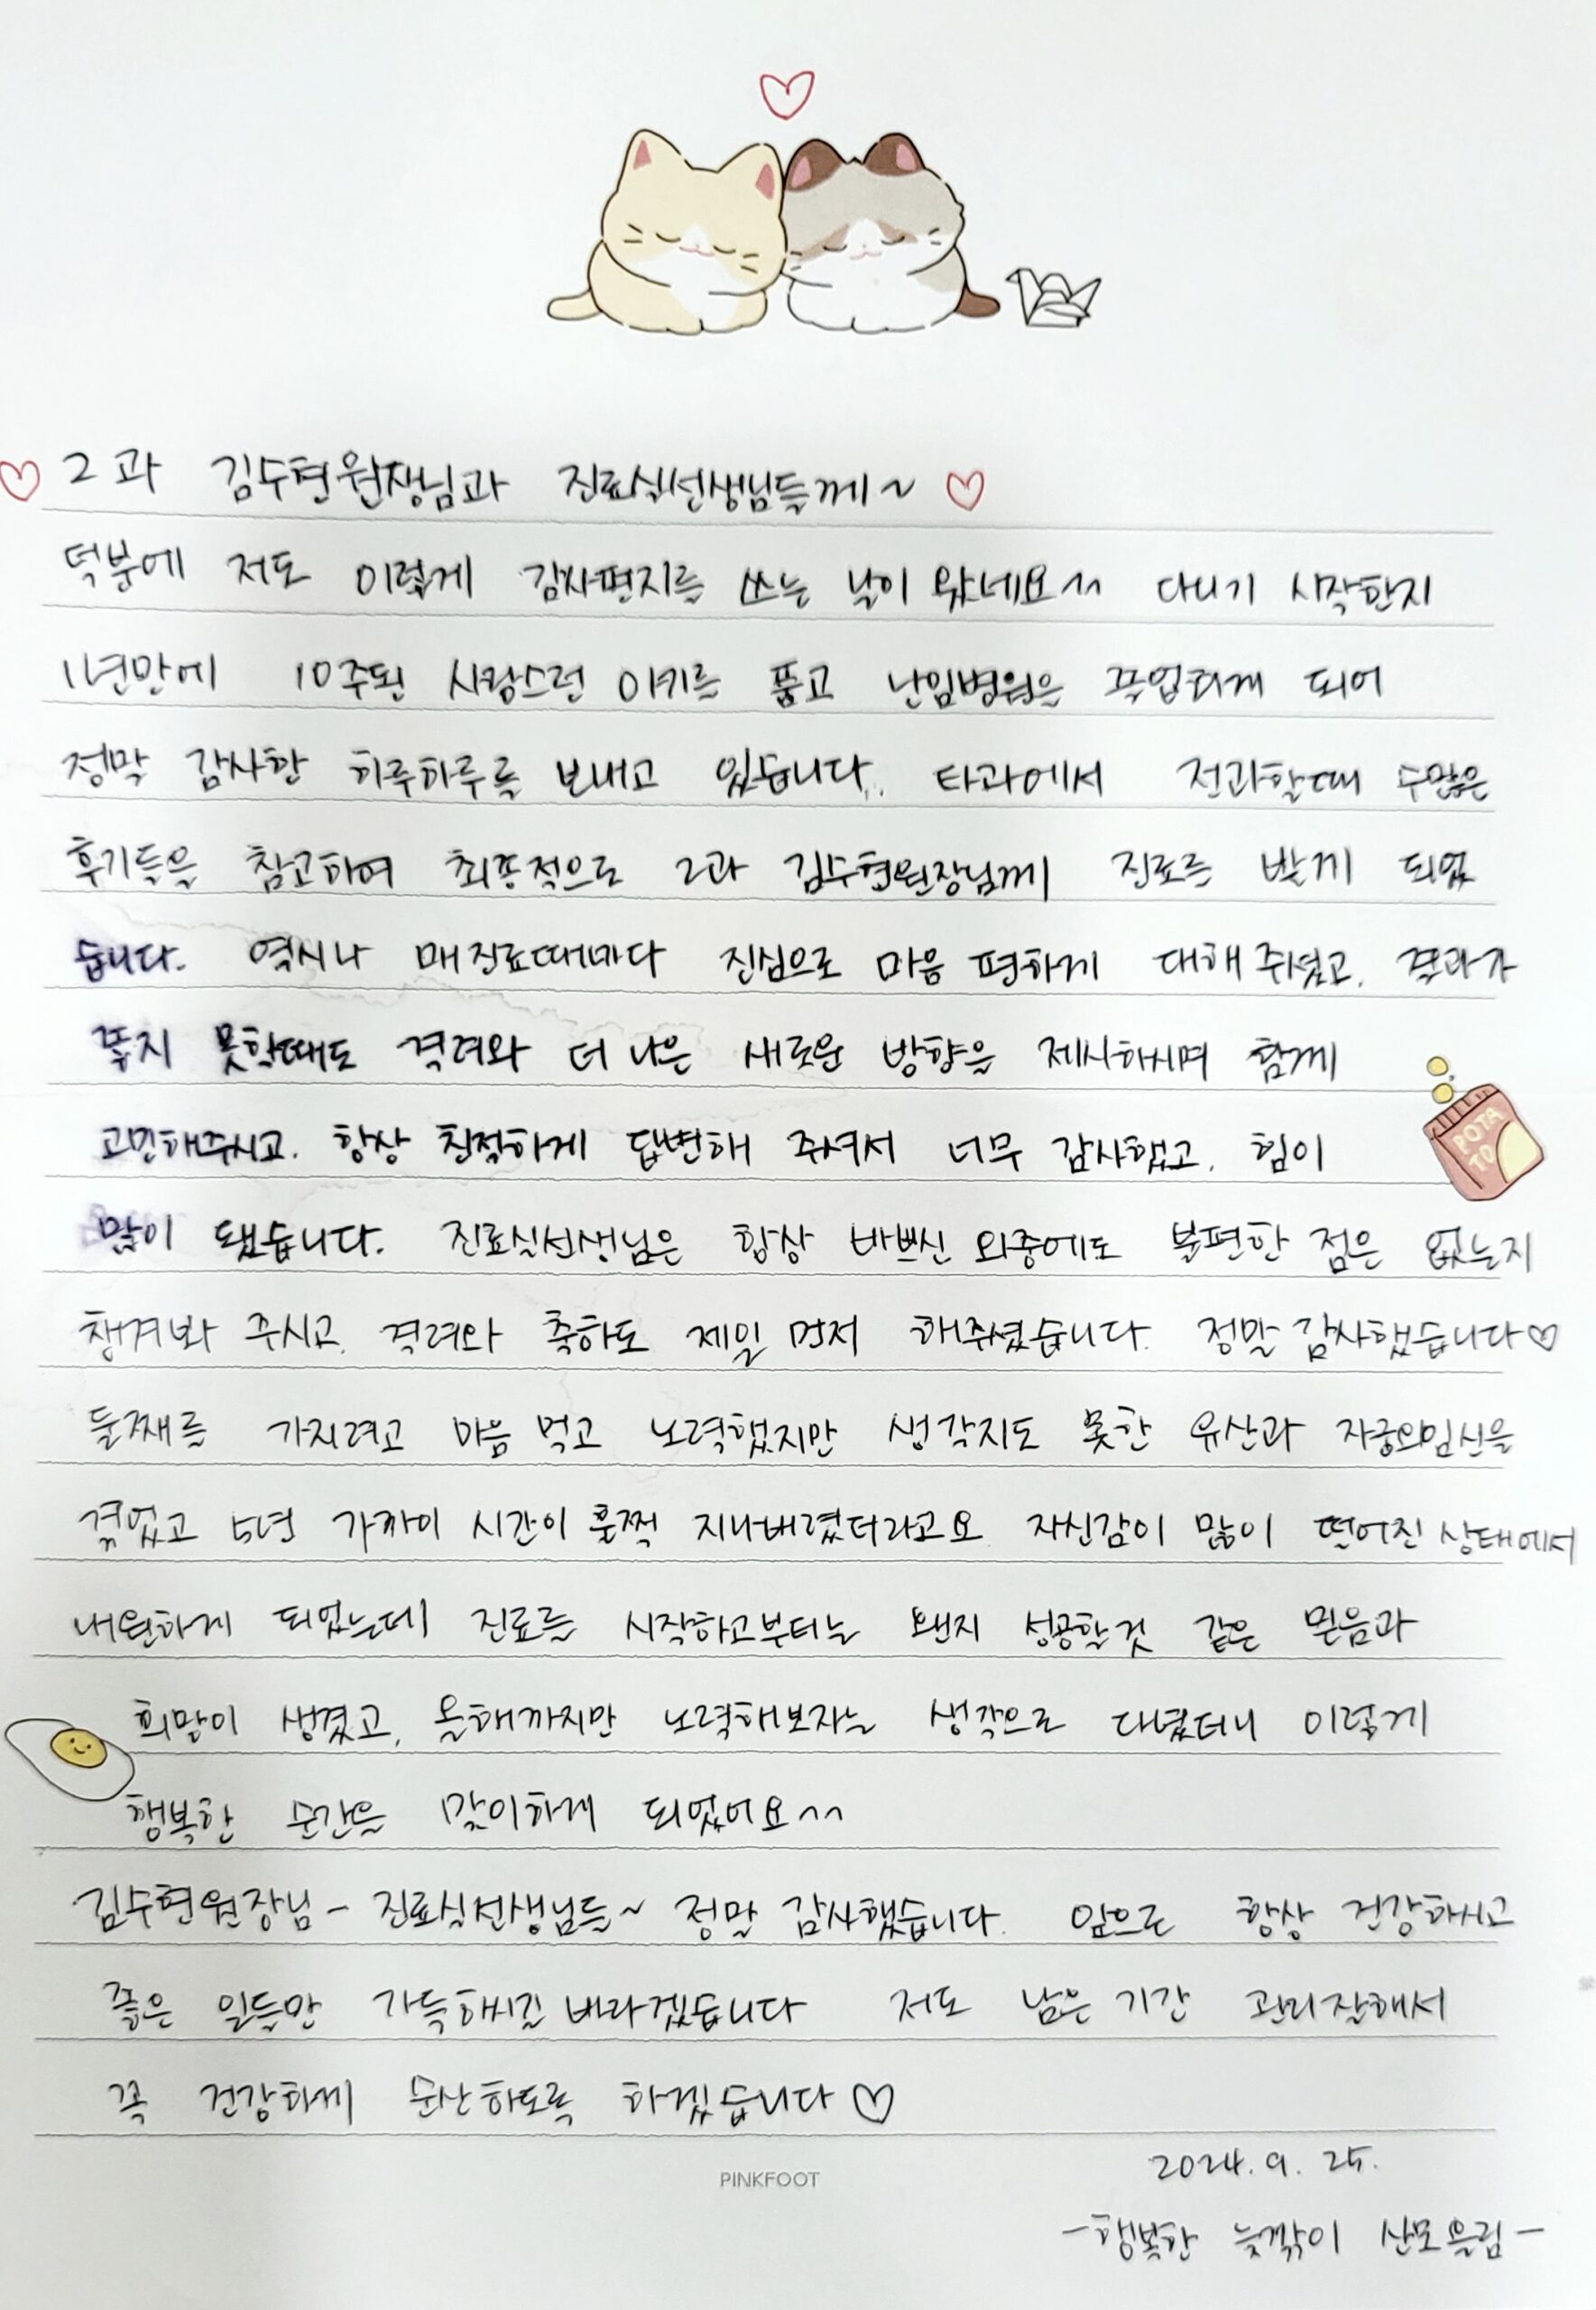 2과 김수현원장님과 진료실선생님들께~
덕분에 저도 이렇게 감사편지를 쓰는 날이 왔네요^^ 다니기 시작한지
1년만에 10주된 사랑스런 아기를 품고 난임병원은 졸업하게 되어
정말 감사한 하루하루를 보내고 있습니다. 타과에서 전과할때 수많은
후기들을 참고하여 최종적으로 2과 김수현원장님께 진료를 받게 되었
습니다. 역시나 매 진료때마다 진심으로 마음 편하게 대해 주셨고, 결과가
좋지 못할때도 격려와 더 나은 새로운 방향을 제시하시며 함께
고민해주시고, 항상 친절하게 답변해 주셔서 너무 감사했고, 힘이
많이 됐습니다. 진료실선생님은 항상 바쁘신 와중에도 불편한 점은 없는지
챙겨봐 주시고, 격려와 축하도 제일 먼저 해주셨습니다. 정말 감사했습니다♡
둘째를 가지려고 마음 먹고 노력했지만 생각지도 못한 유산과 자궁외임신을
겪었고 5년 가까이 시간이 훌쩍 지나버렸더라고요. 자신감이 많이 떨어진 상태에서
내원하게 되었는데 진료를 시작하고부터는 왠지 성공할것 같은 믿음과
희망이 생겼고, 올해까지만 노력해보자는 생각으로 다녔더니 이렇게
행복한 순간을 맞이하게 되었어요^^
김수현원장님~ 진료실선생님들~ 정말 감사했습니다. 앞으로 항상 건강하시고
좋은 일들만 가득하시길 바라겠습니다 저도 남은 기간 관리잘해서
꼭 건강하게 순산하도록 하겠습니다♡
PINKFOOT
2024. 9. 25.
-행복한 늦깎이 산모올림-
POTA
TO